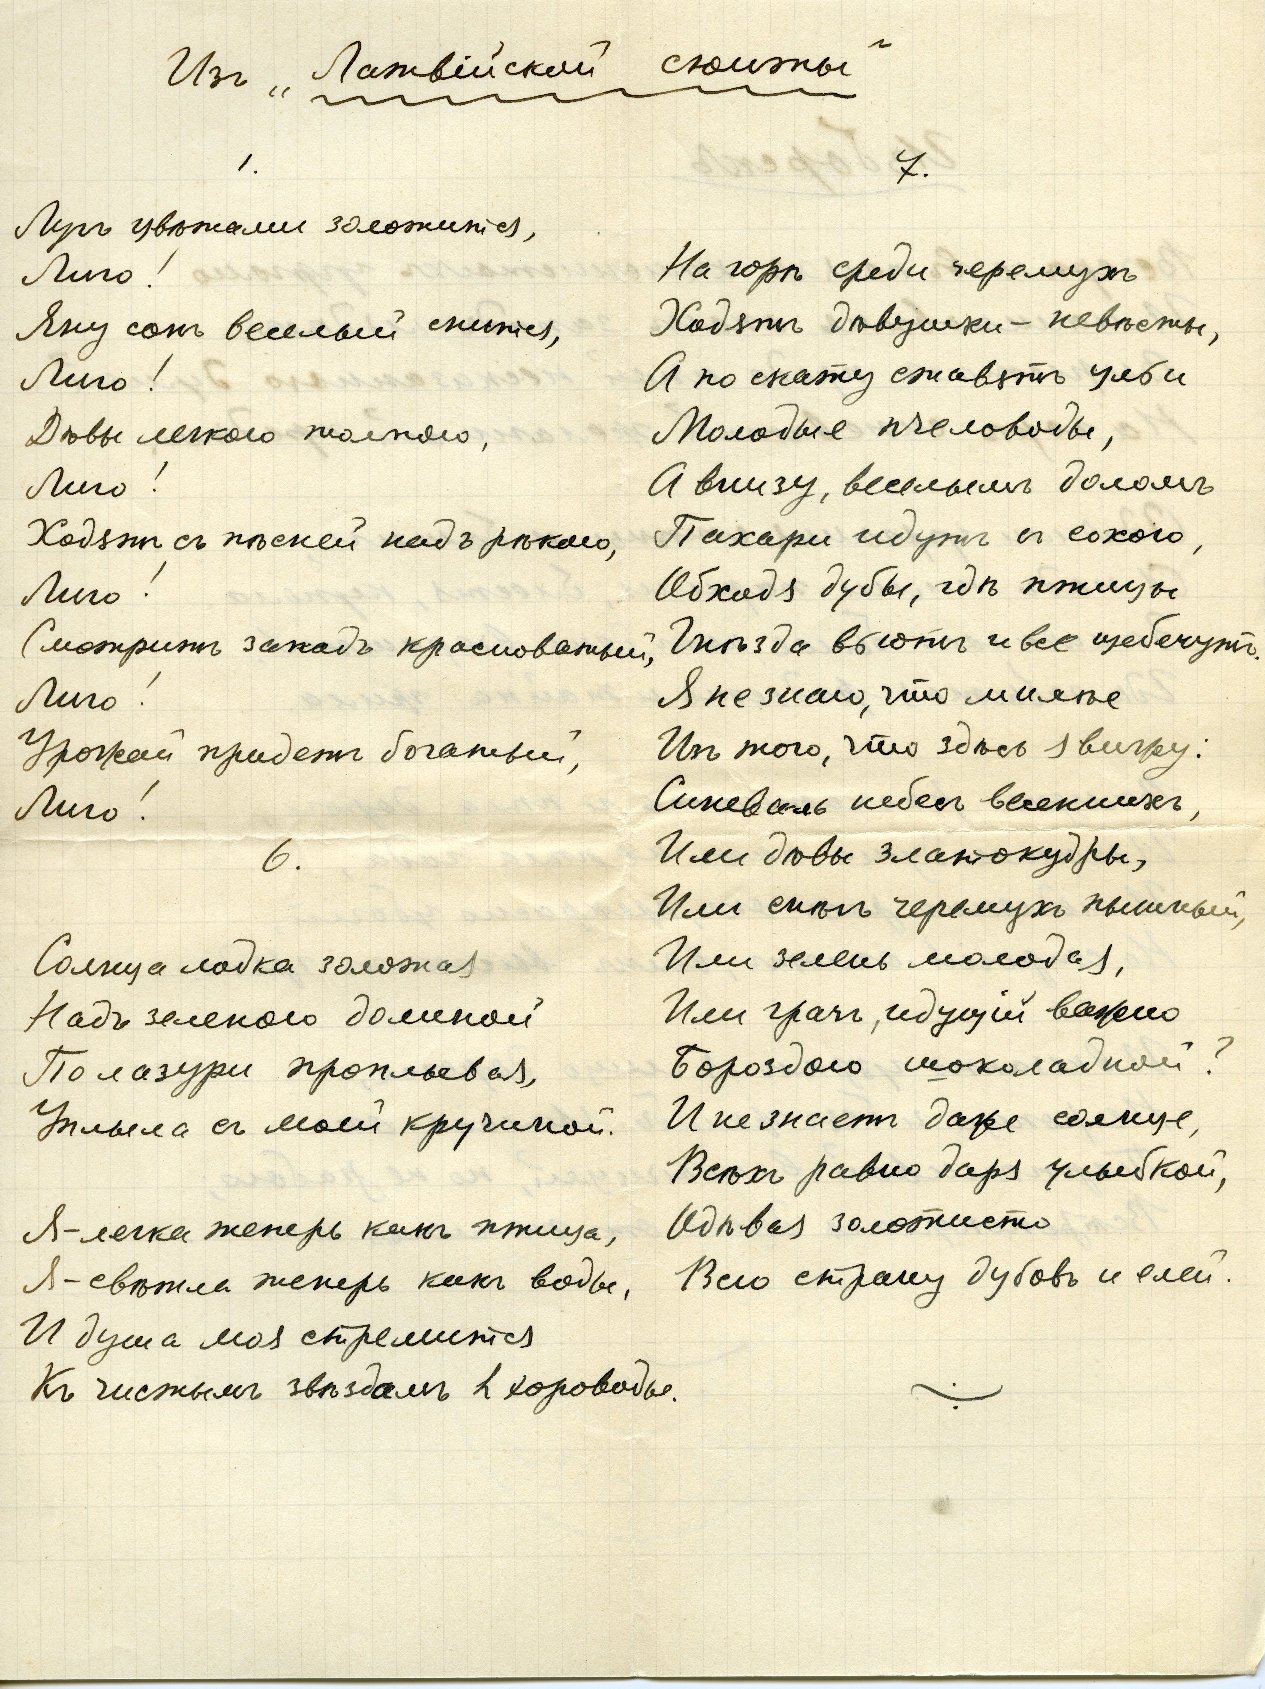 Изъ „Латвійской сюиты“
1.
Лугъ цвѣтами золотится,
Лиго!
Яну сонъ веселый снится,
Лиго!
Дѣвы легкою толпою,
Лиго!
Ходятъ съ пѣсней надъ рѣкою,
Лиго!
Смотритъ закатъ красноватый,
Лиго!
Урожай придетъ богатый,
Лиго!
6.
Солнца лодка золотая
Надъ зеленою долиной
По лазури проплывая,
Уплыла съ моей кручиной.
Я – легка теперь какъ птица,
Я – свѣтла теперь какъ воды,
И душа моя стремится
Къ чистымъ звѣздамъ въ хороводы.
7.
На горѣ среди черемухъ
Ходятъ дѣвушки – невѣсты,
А по скату ставятъ ульи
Молодые пчеловоды,
А внизу, веселымъ доломъ
Пахари идутъ съ сохою,
Обходя дубы, гдѣ птицы
Гнѣзда вьютъ и все щебечутъ.
Я не знаю, что милѣе
Изъ того, что здѣсь я вижу:
Синева ль небесъ весеннихъ,
Или дѣвы златокудры,
Или снѣгъ черемухъ пышный,
Или зелень молодая,
Или грачъ, идущій важно
Бороздою шоколадной?
И не знаетъ даже солнце,
Всѣхъ равно даря улыбкой,
Одѣвая золотисто
Всю страну дубовъ и елей.